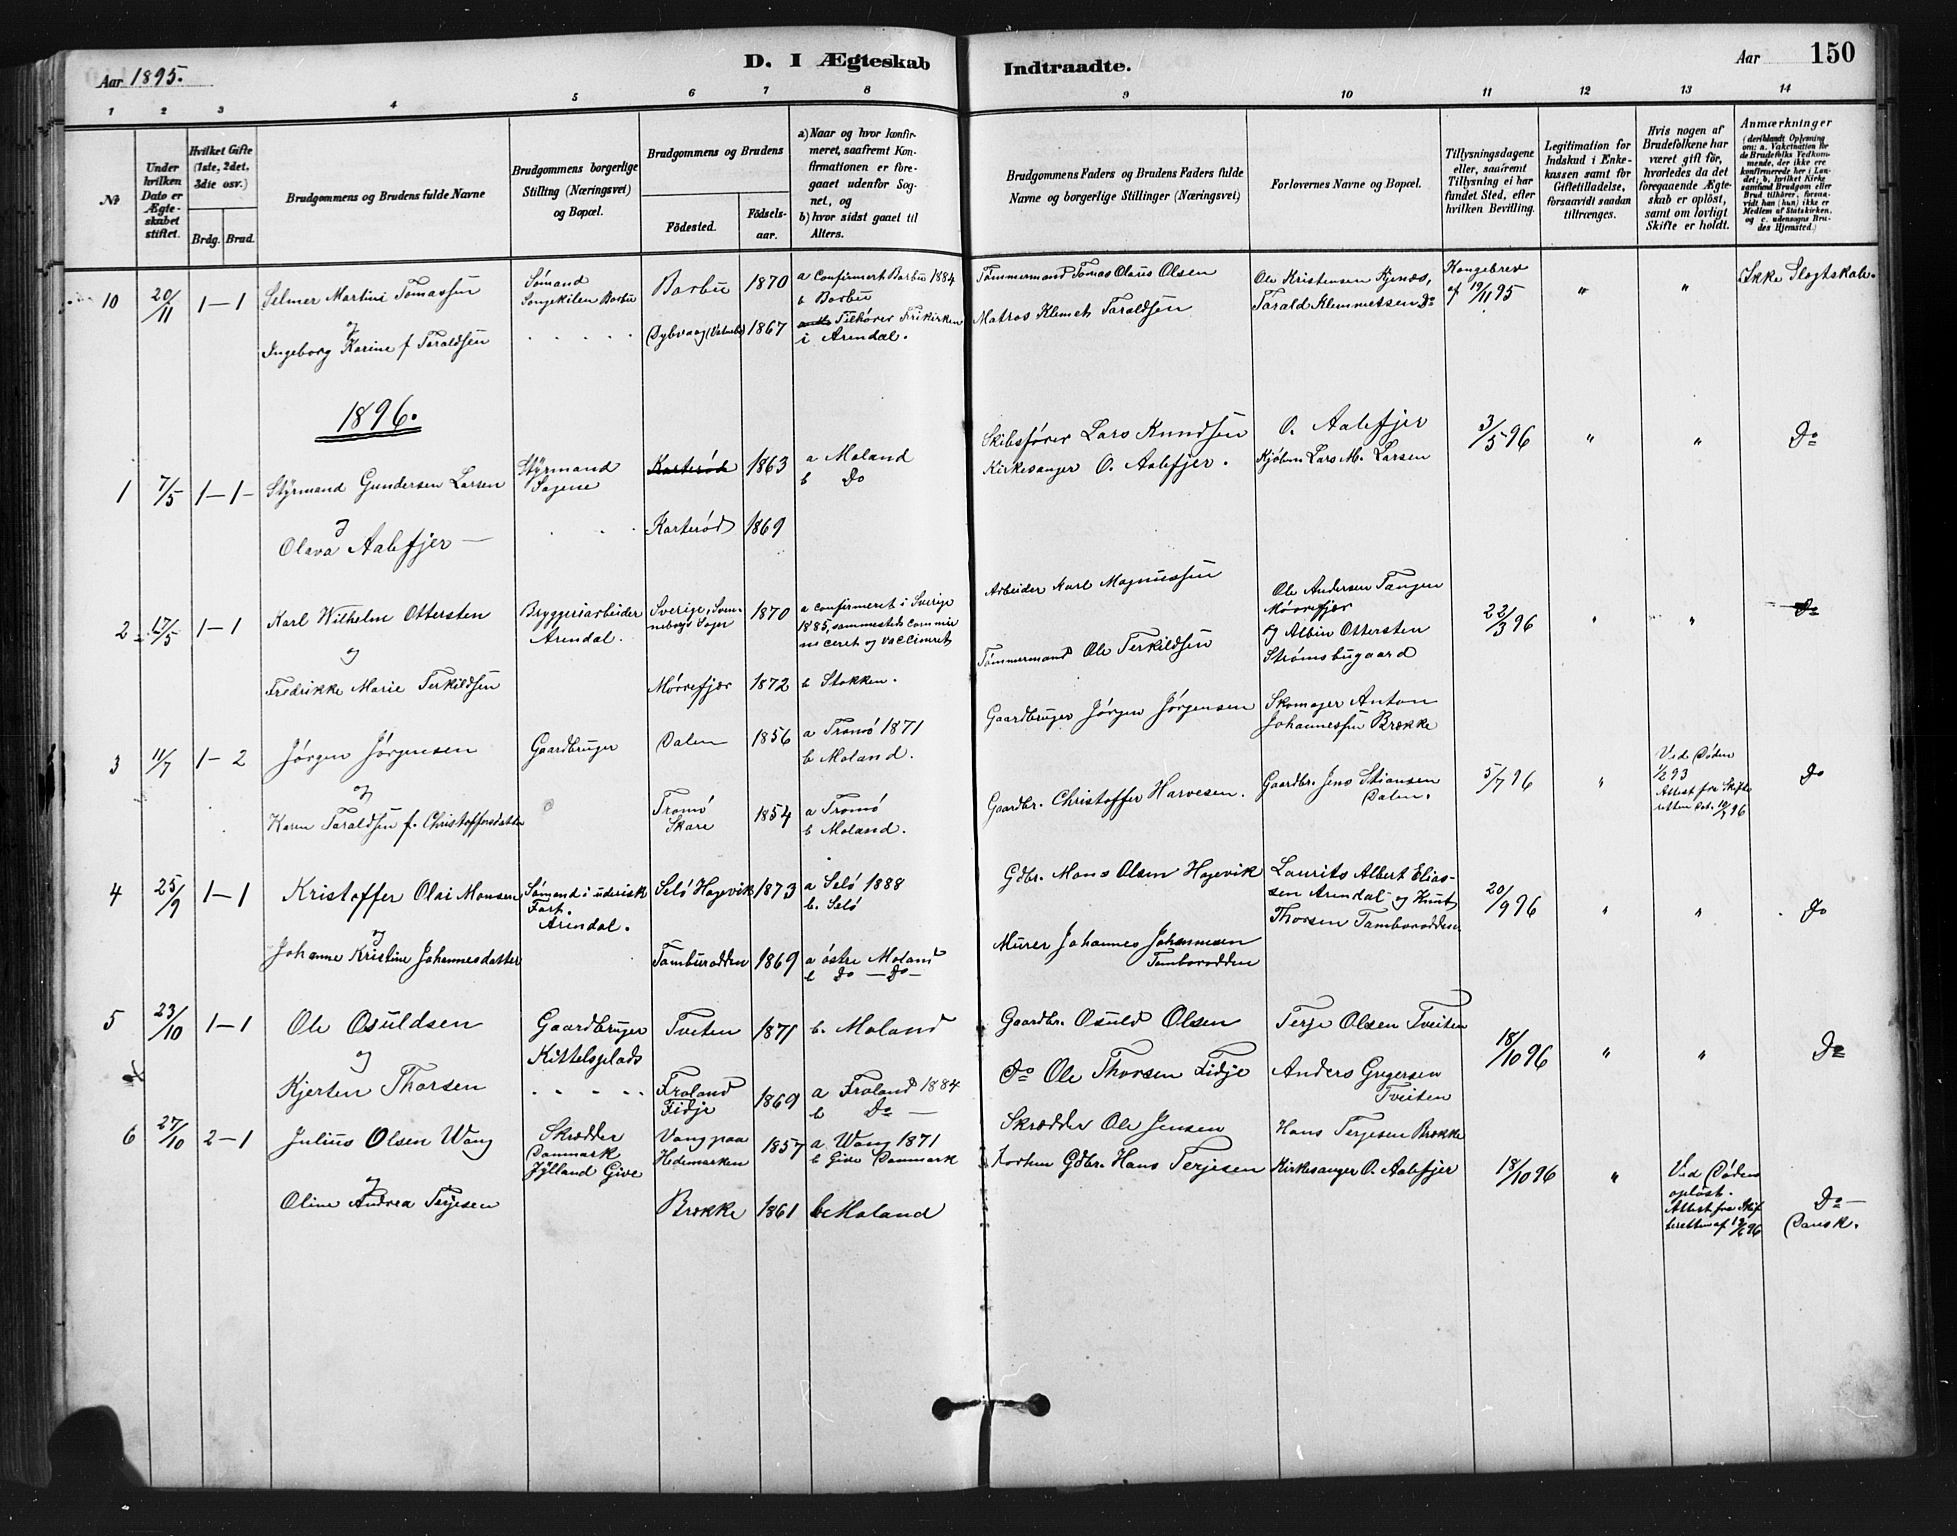 Aar 1895.
D. I Ægteskab Indtraadte.
Aar 150
1 2 3 4 5 6 7 8 9 10 11 12 13 14
No
Under hvilken Dato er Ægteskabet stiftet.
Hvilket Gifte (1ste, 2det, 3die osv.)
Brdg. Brud.
Brudgommens og Brudens fulde Navne
Brudgommens borgerlige Stilling (Næringsvei) og Bopæl.
Brudgommens og Brudens
Fødested.
Fødselsaar.
a) Naar og hvor konfirmeret, saafremt Konfirmationen er foregaaet udenfor Sognet, og
b) hvor sidst gaaet til Alters.
Brudgommens Faders og Brudens Faders fulde Navne og borgerlige Stillinger (Næringsvei)
Forlovernes Navne og Bopæl.
Tillysningsdagene eller, saafremt Tillysning ei har fundet Sted, efter hvilken Bevilling.
Legitimation for Indskud i Enkekassen samt for Giftetilladelse, forsaavidt saadan tiltrænges.
Hvis nogen af Brudefolkene har været gift før, hvorledes da det foregaaende Ægteskab er opløst, samt om lovligt Skifte er holdt.
Anmærkninger (deriblandt Oplysning om: a. Vakcination for de Brudefolks Vedkommende, der ikke ere konfirmerede her i Landet; b, hvilket Kirkesamfund Brudgom eller Brud tilhører, forsaavidt han (hun) ikke er Medlem af Statskirken, og c. udensogns Brudes Hjemsted.)
10 20/11 1-1 Selmer Martini Tomassen Sømand Songekilen Barbu Barbu 1870 a Confirmert Barbu 1884 b Barbu Tømmermand Tomas Olaus Olsen Ole Kristensen Kjenæs, Kongebrev af 19/11 95 " " Ikke Slegtskab.
og
Ingeborg Karine f Taraldsen Dybvaag 1867 Tilhører Frikirken i Arendal. Matros Klemet Taraldsen Tarald Klemmetsen Do
1896.
1 7/5 1-1- Styrmand Gundersen Larsen Styrmand Sagene Karterød 1863 a Moland b Do Skibsfører Lars Knudsen O. Aalefjer 3/5 96 " " Do
og
Olava Aalefjer Karterød 1869 Kirkesanger O. Aalefjer. Kjøbm Lars M. Larsen
2 17/5 1-1 Karl Wilhelm Ottersten Bryggeriarbeider Arendal. Sverige, 1870 a confirmeret i Sverige 1885, sammesteds vaccineret Arbeider Karl Magnussen Ole Andersen Tangen Mørefjær 22/3 96 " " Do
og
Fredrikke Marie Terkildsen Mørefjær 1872 b Stokken. Tømmermand Ole Terkildsen og Albin Ottersten Strømsbugaard
3 11/7 1-2 Jørgen Jørgensen Gaardbruger Dalen 1856 a Tromø 1871 b Moland. Gaardbruger Jørgen Jørgensen Skomager Anton Johannessen Brække 5/7 96 " Ved Døden 1/2 93 Attest fra Skifteretten Dat. Do
og
Karen Taraldsen f. Christoffersdatter Tromø Skare 1854 a Tromø b Moland. Gaardbr. Christoffer Harvesen. Gaardbr. Jens Stiansen Dalen.
4 25/9 1-1 Kristoffer Olai Monsen Sømand i uderisk Fart. Arendal. Selø Hagevik 1873 a Selø 1888 b. Selø Gdbr. Mons Olsen Hagevik Laurits Albert Eliassen Arendal og Knut Thorsen Tamborodden 20/9 96 " " Do
og
Johanne Kristine Johannesdatter Tamburodden 1869 a østre Moland b Do -Do- Murer Johannes Johannesen Tamborodden
5 23/10 1-1 Ole Osuldsen Gaardbruger Kittelsplads Tveiten 1871 b. Moland Gaardbr. Osuld Olsen Terje Olsen Tveiten 18/10 96 " " Do
og
Kjersten Thorsen Froland Fidje 1869 a Froland 1884 b Do Do Ole Thorsen Fidje Anders Gregersen Tveiten
6 27/10 2-1 Julius Olsen Wang Skrædder Danmark Jylland Give Vang paa Hedemarken 1857 a Wang 1871 b Give Danmark Skrædder Ole Jensen Hans Terjesen Brække 18/10 96 " Ved Døden opløst. Attest fra Skifteretten af Do Dansk.
og
Oline Andrea Terjesen Brække 1861 b Moland Gdbr. Hans Terjesen Kirkesanger O. Aalefjer